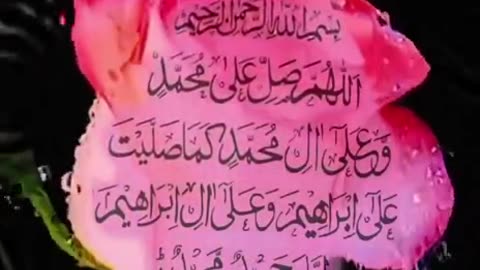 بسم الله الرحمن الرحيم
اللهم صل على محمد
وعلى ال محمد كما صليت
على ابراهيم وعلى ال ابراهيم
حميد مجيد